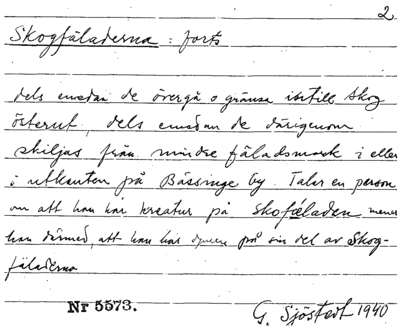 2
Skogfäladerna : forts
dels emedan de övergå o gränsa intill skog
österut, dels emedan de därigenom
skiljas från mindre fäladsmark i eller
i utkanten på Bässinge by. Talar en person
om att han har kreatur på skofäladen menar
han därmed, att han har på sin del av Skog-
fäladerna
Nr 5573.
G. Sjöstedt 1940